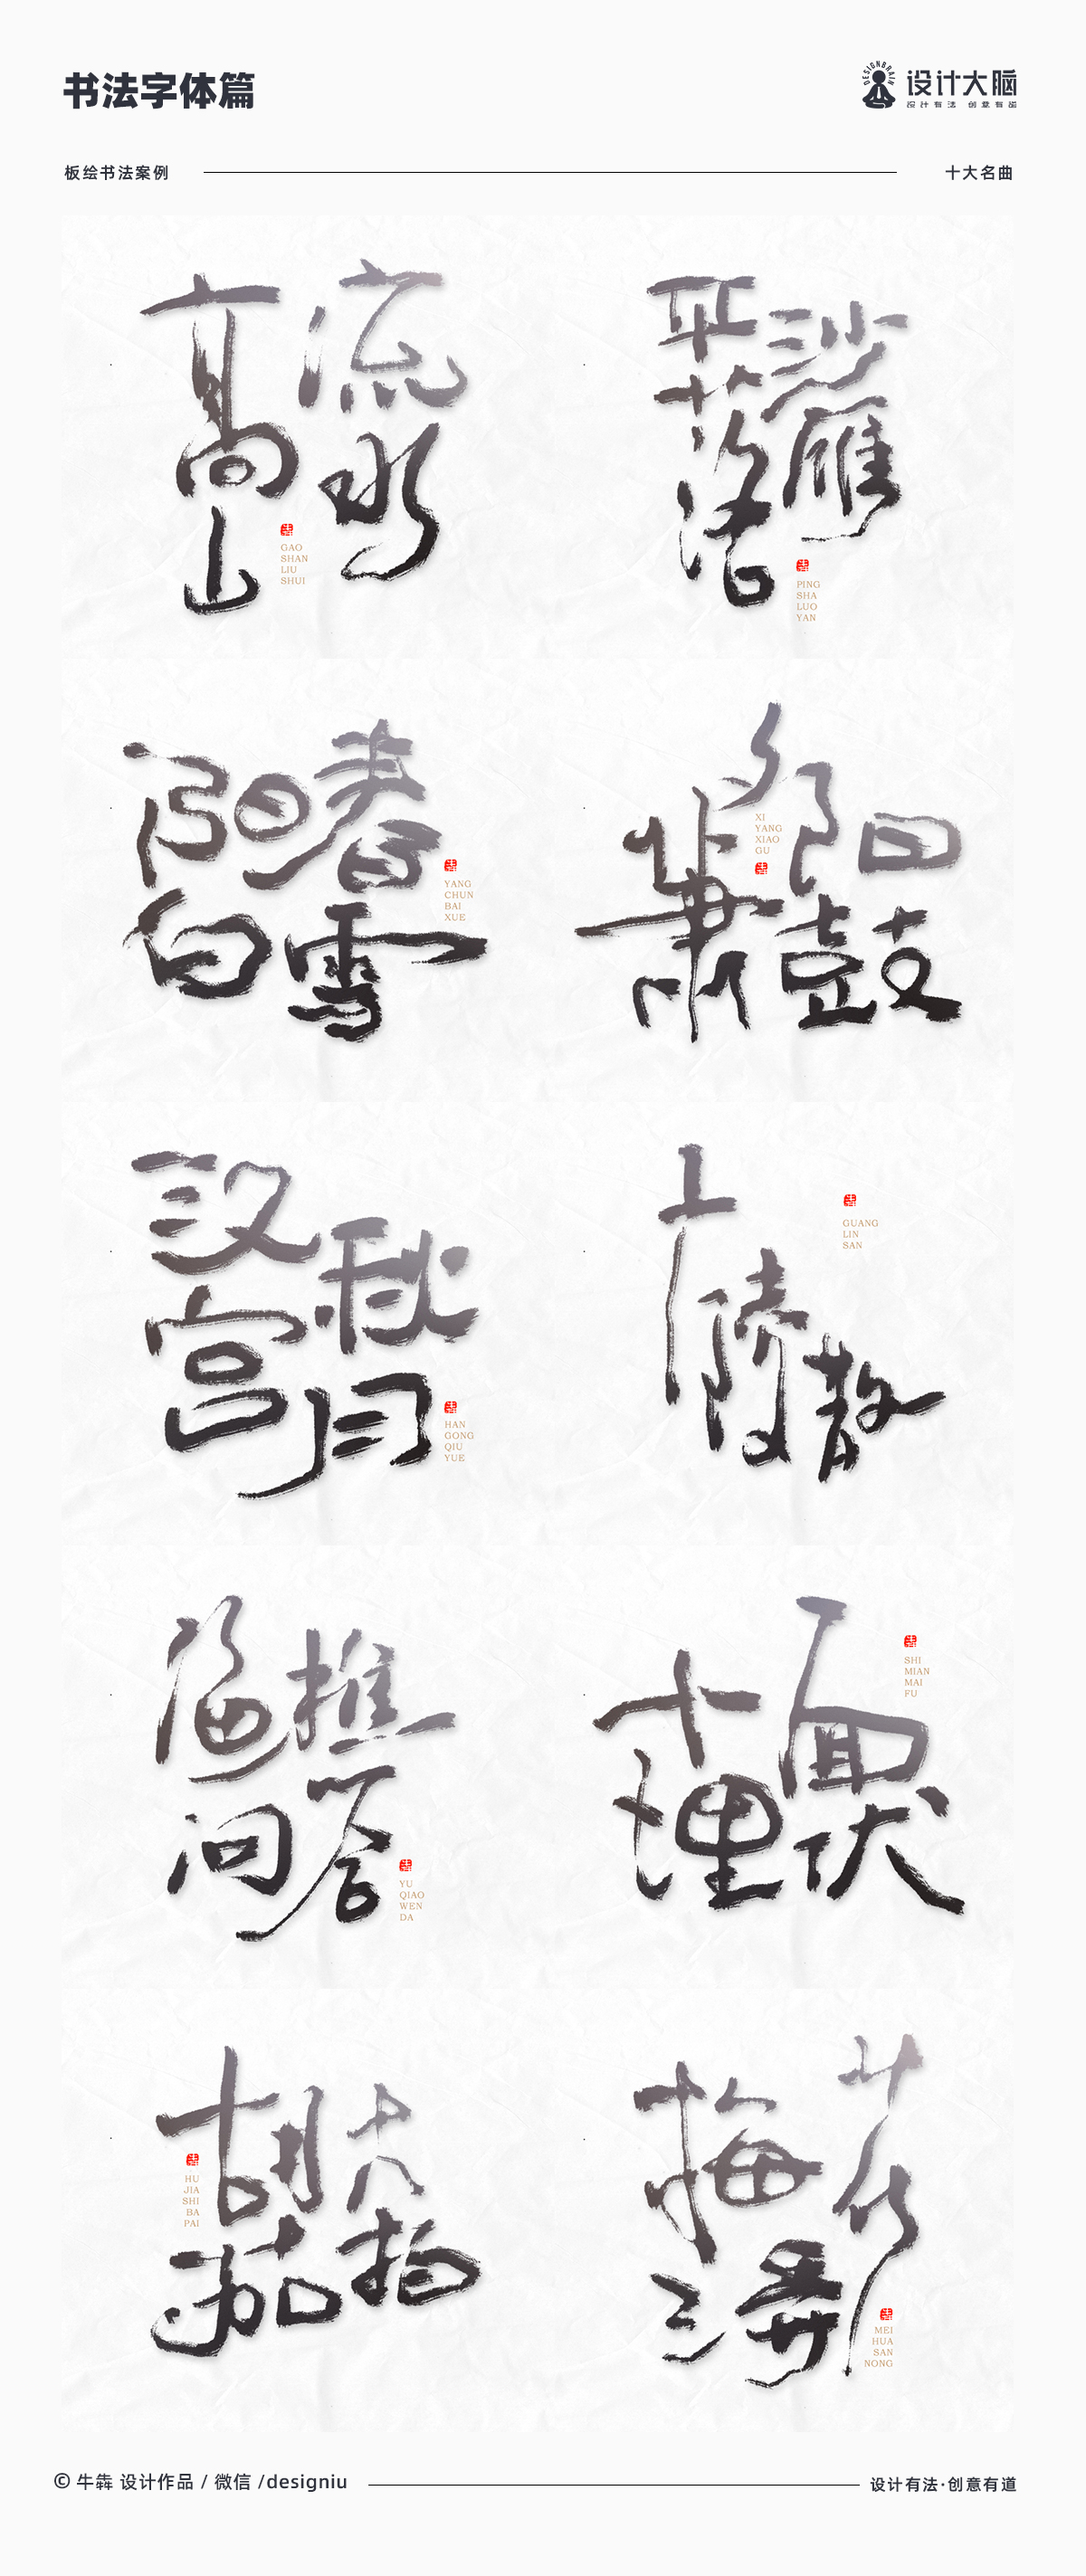 书法字体篇
DESIGNBRAIN
设计大脑
设计有法 创意有道
板绘书法案例
十大名曲
高山
流水
GAO
SHAN
LIU
SHUI
平沙
落雁
PING
SHA
LUO
YAN
阳春
白雪
YANG
CHUN
BAI
XUE
夕阳
箫鼓
XI
YANG
XIAO
GU
汉宫
秋月
HAN
GONG
QIU
YUE
广陵散
GUANG
LIN
SAN
渔樵
问答
YU
QIAO
WEN
DA
十面
埋伏
SHI
MIAN
MAI
FU
胡笳
十八拍
HU
JIA
SHI
BA
PAI
梅花
三弄
MEI
HUA
SAN
NONG
© 牛犇 设计作品 / 微信 /designiu
设计有法·创意有道